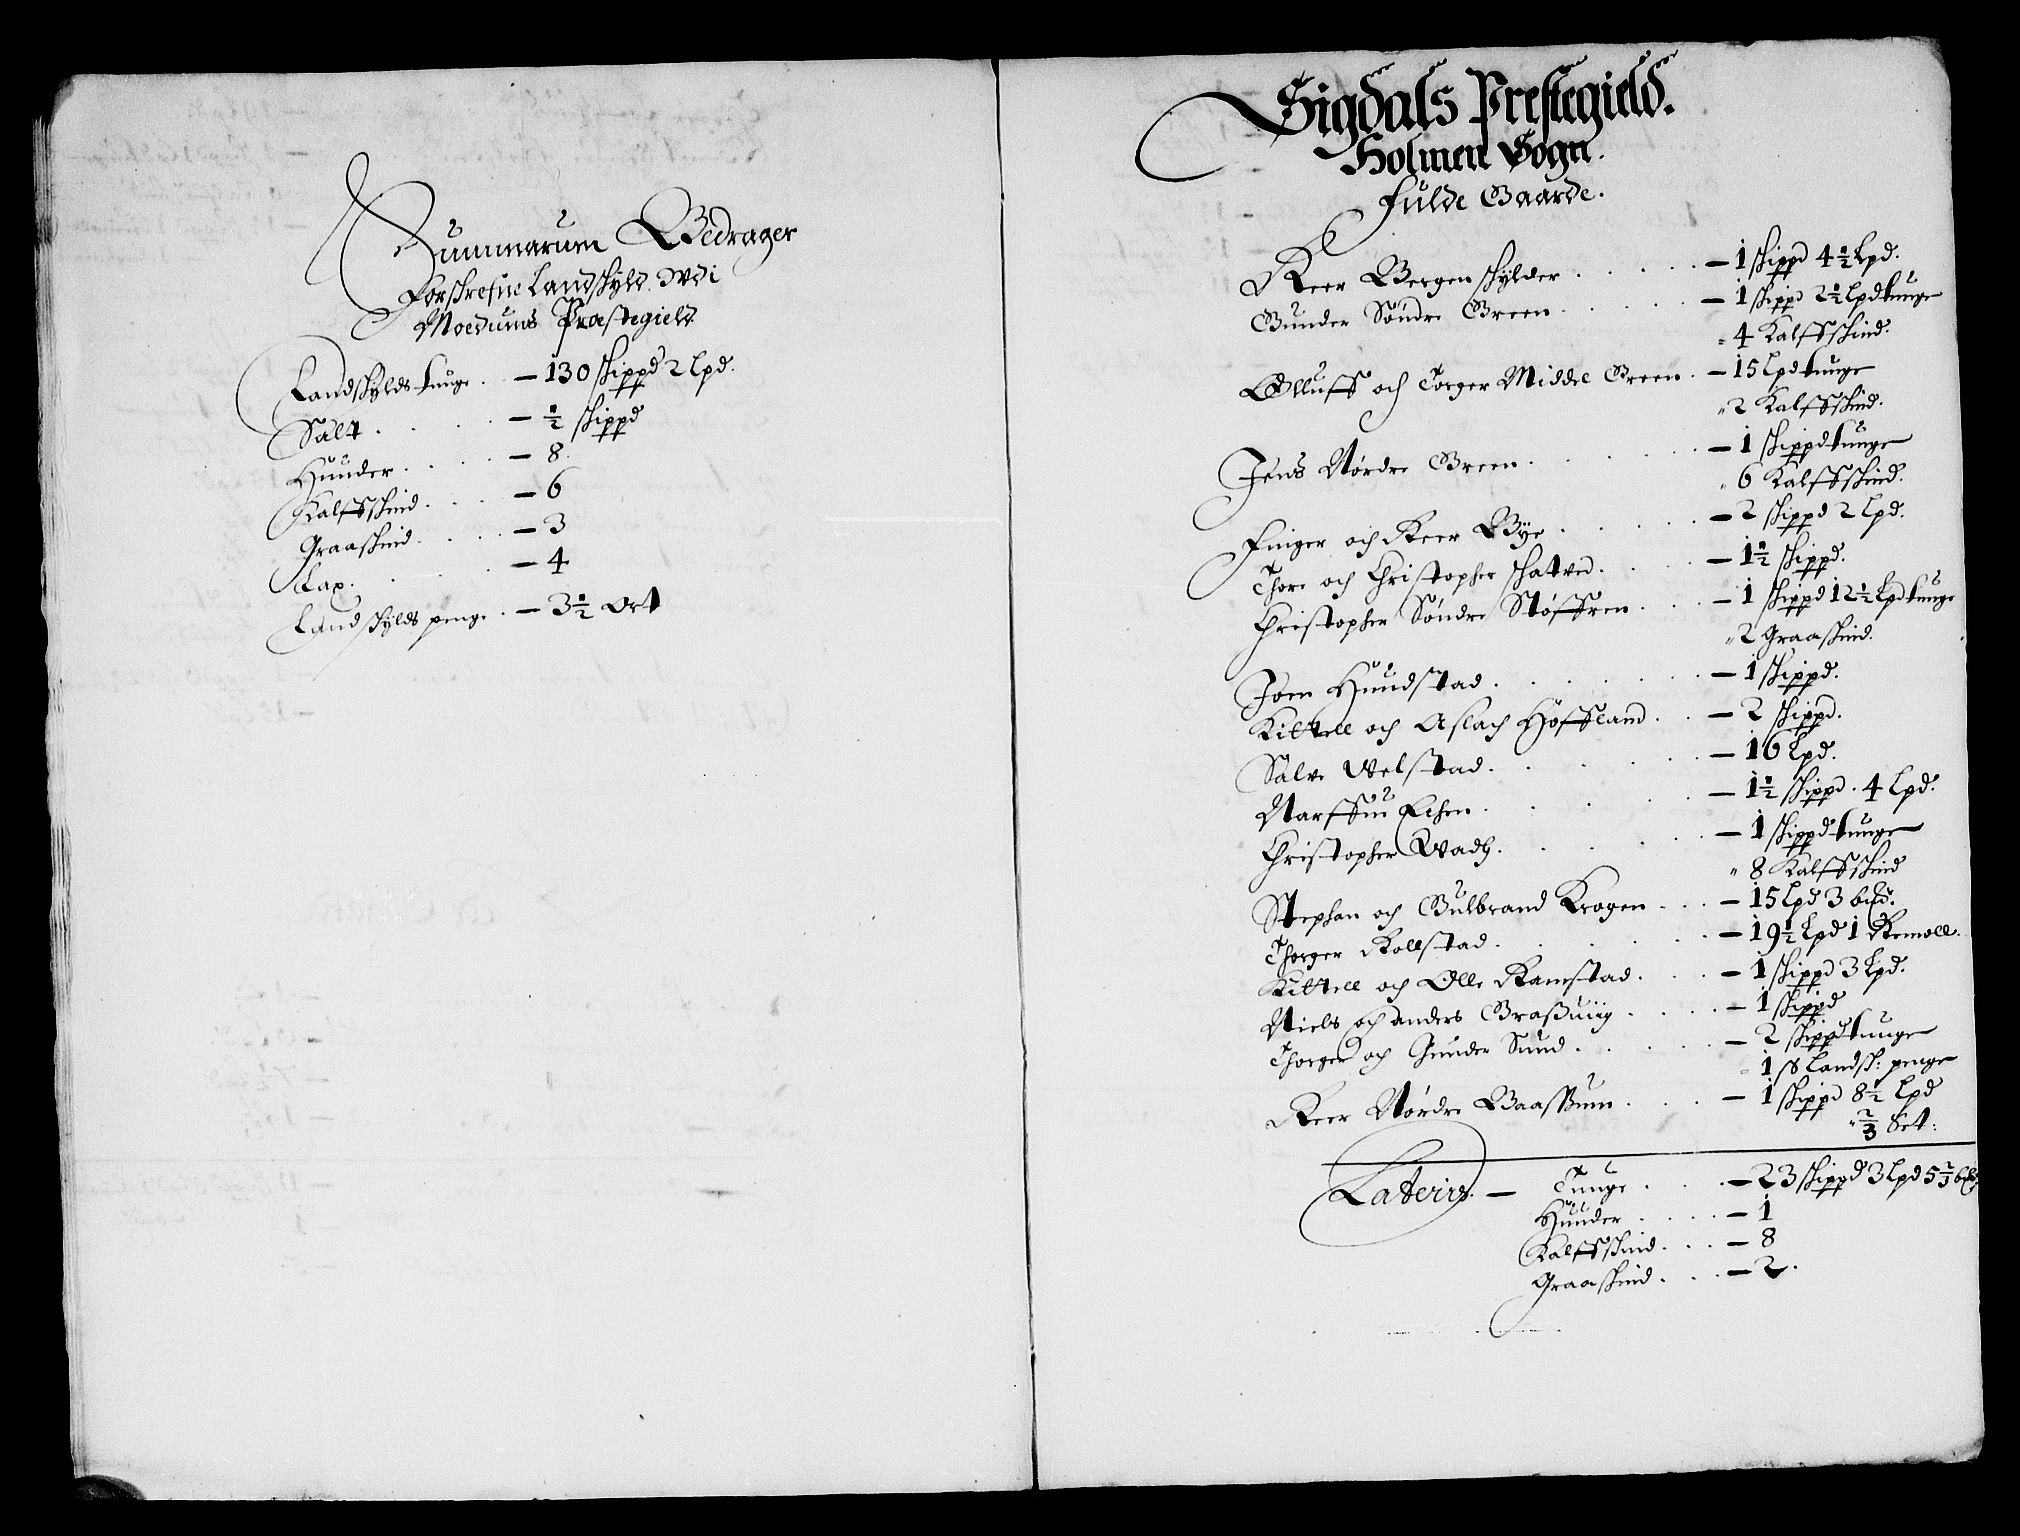 Summarum Bedrager
forschrefne Landschyld Udi
Moedums Præstegield
Landschyldstunge . — 130 schippd 2 Lpd.
Salt . . . — ½ schippd
Hunder . . . — 8.
Kalfsschind . . . — 6
Graaschind . . . — 3
Lax. . . . — 4
Landschylds penge . — 3½ Ort
Sigdals Prestegield.
Holmen Sogn.
Fulde Gaarde.
Peer Bergen schylder . . . . — 1 schippd 4½ Lpd.
Gunder Søndre Green . . . . — 1 schippd 2½ Lpd tunge
" 4 Kalfsschind.
Olluff och Torger Middel Green . — 15 Lpd tunge
" 2 Kalfsschind.
Jens Nørdre Green . . . . — 1 schippd tunge
" 6 Kalfsschind.
Finger och Peer Bye . . . . — 2 schippd 2 Lpd.
Thore och Christopher schatved . . . — 1½ schippd.
Christopher Søndre Støffren . . . — 1 schippd 12½ Lpd tunge
" 2 Graaschind.
Joen Hundstad . . . . — 1 schippd.
Kittell och Aslach Høffland . . — 2 schippd.
Salve Velstad . . . . — 16 Lpd.
Narffu Echen . . . . — 1½ schippd. 4 Lpd.
Christopher Wadh. . . . — 1 schippd tunge
" 8 Kalfsschind
Stephan och Gulbrand Krogen . . . — 15 Lpd 3 bd.
Thorger Kollstad . . . . — 19½ Lpd 1 Remoll.
Kittell och Olle Ramstad . . . — 1 schippd 3 Lpd.
Niels och anders Graßuiig . . . . — 1 schippd
Thorger och Gunder Sund . . . . — 2 schippd tunge
" 1 ß Landsch: penge
Peer Nørdre Baaßum . . . . — 1 schippd 8½ Lpd
" ⅔ Set:
Lateris. — Tunge . . . — 23 schippd 3 Lpd 5⅔ bd
Hunder . . . . — 1
Kalfsschind . . . — 8
Graaschind . . . — 2.